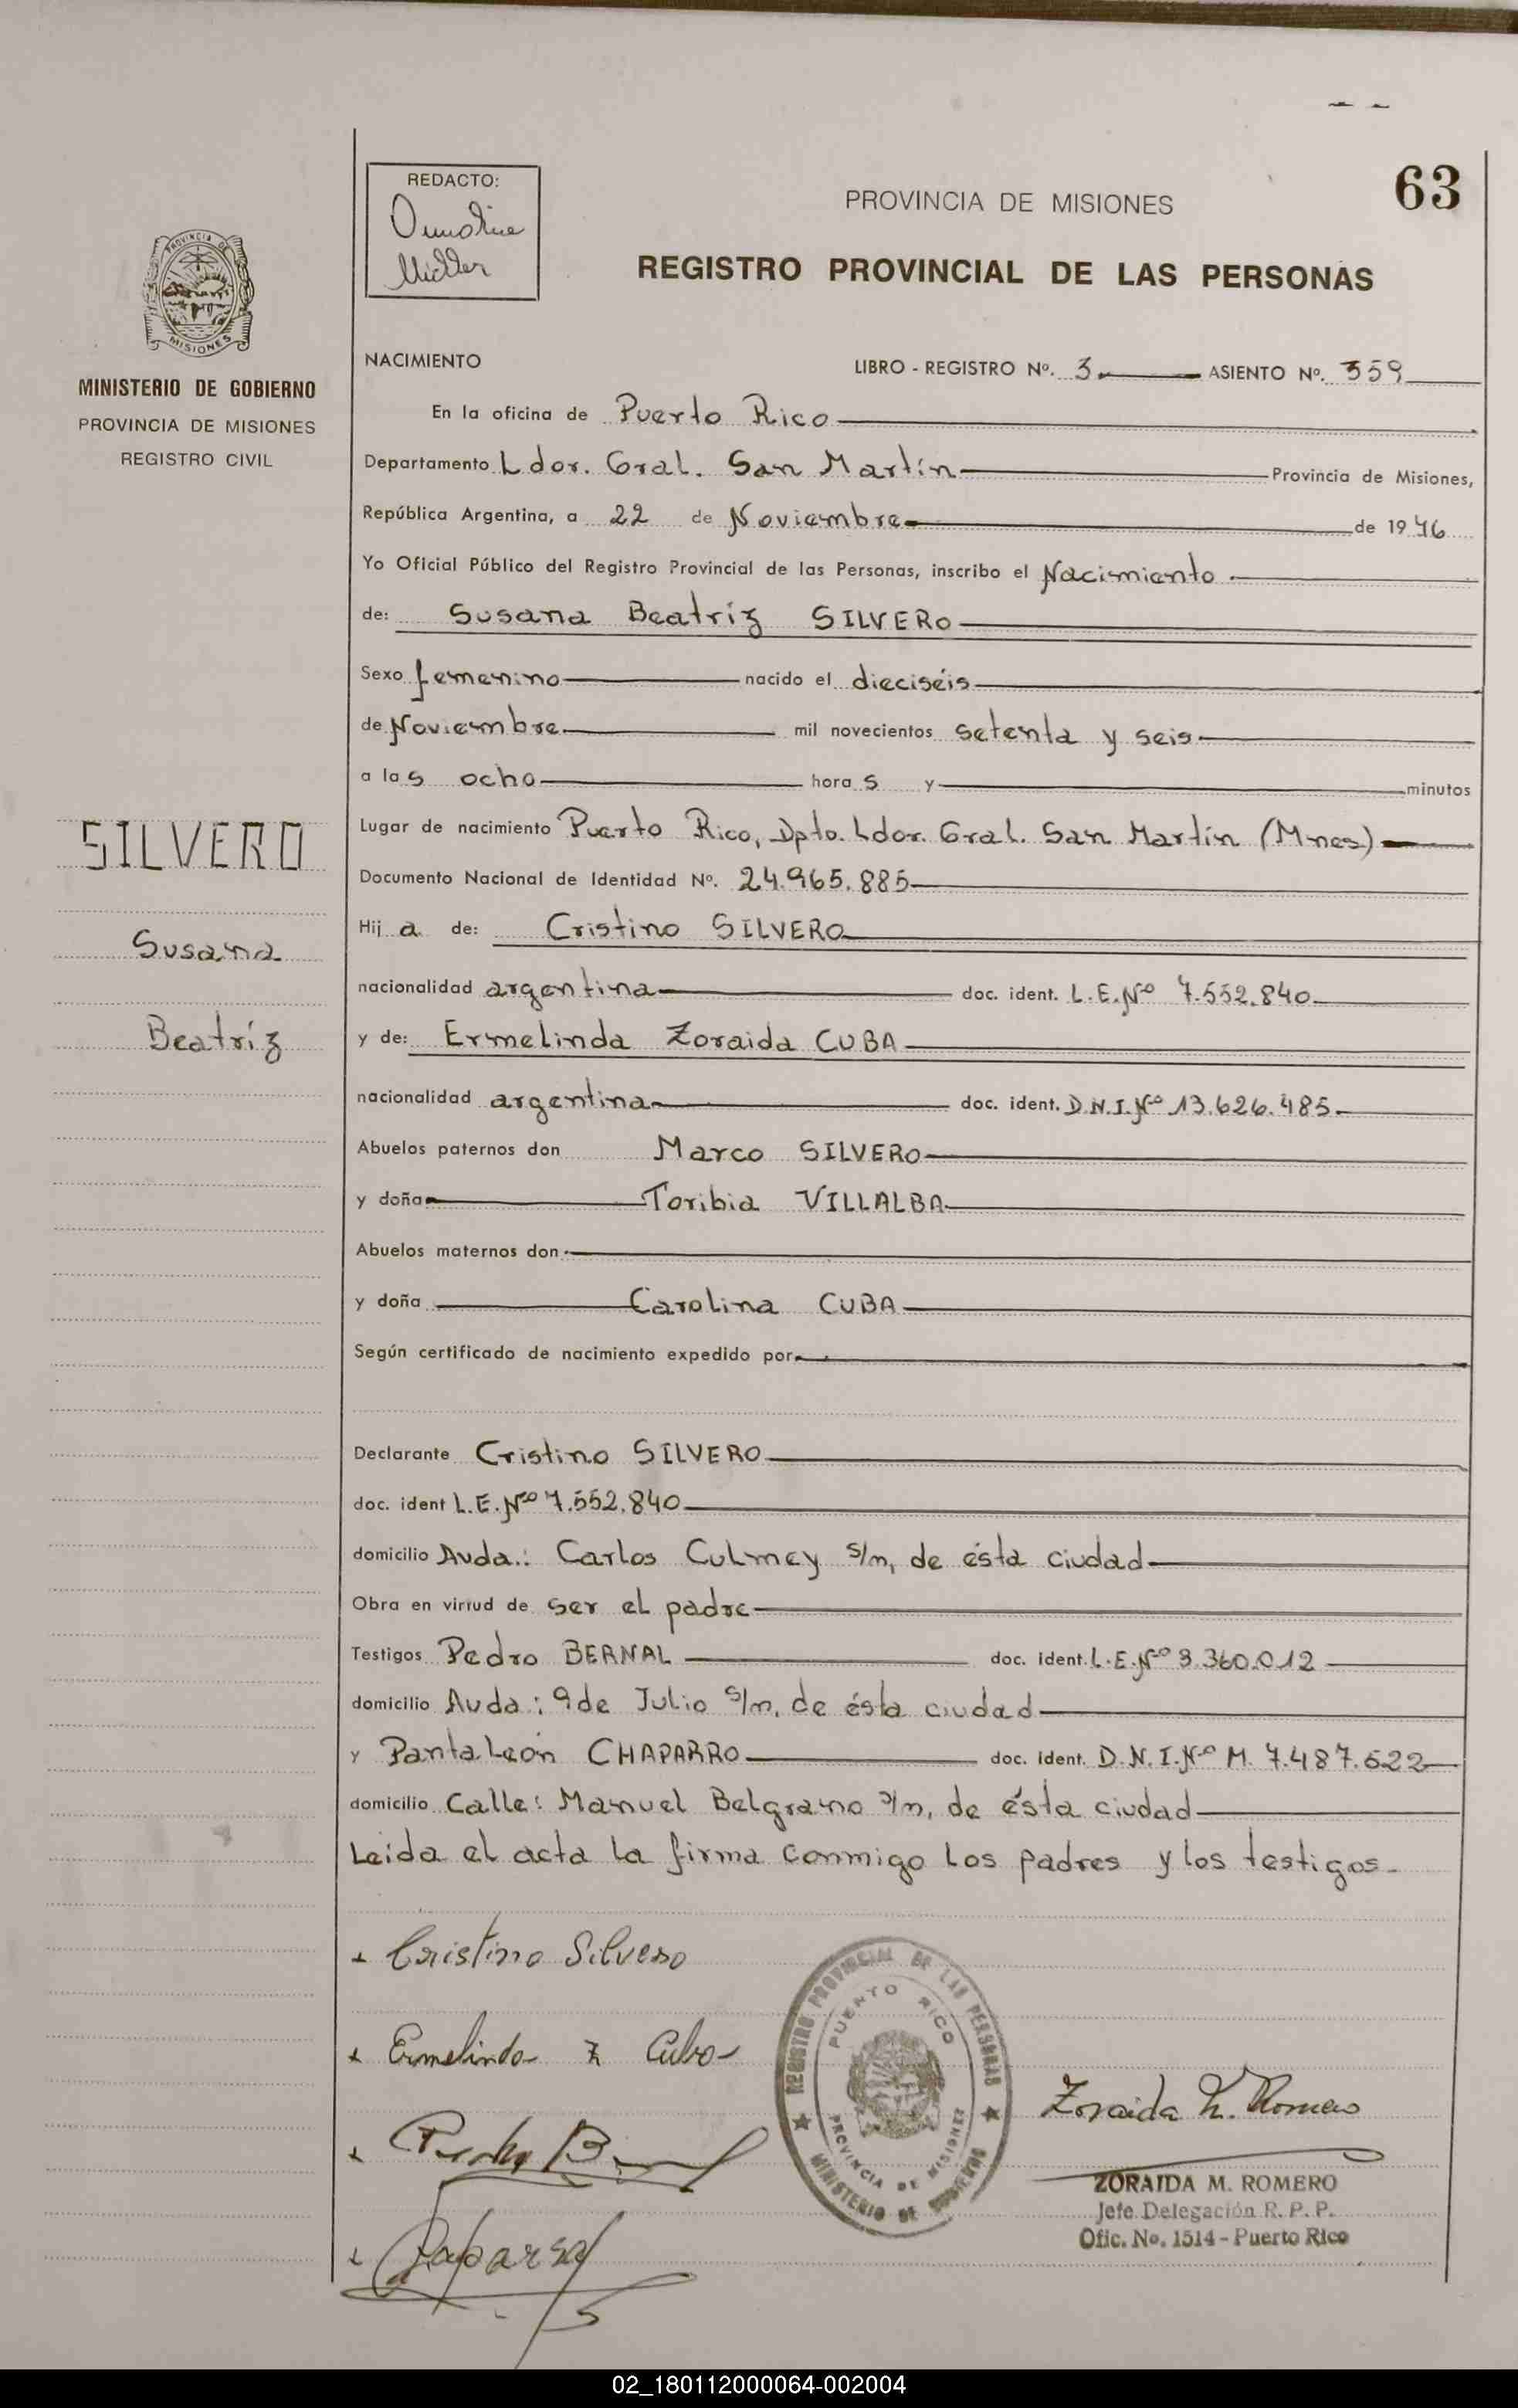 63
REDACTO:
PROVINCIA DE MISIONES
REGISTRO PROVINCIAL DE LAS PERSONAS
PROVINCIA DE
MISIONES
MINISTERIO DE GOBIERNO
PROVINCIA DE MISIONES
REGISTRO CIVIL
SILVERO
Susana
Beatríz
NACIMIENTO LIBRO - REGISTRO Nº. 3 ASIENTO Nº. 359
En la oficina de Puerto Rico
Departamento Ldor. Gral. San Martín Provincia de Misiones,
República Argentina, a 22 de Noviembre de 1976
Yo Oficial Público del Registro Provincial de las Personas, inscribo el Nacimiento
de: Susana Beatríz SILVERO
Sexo femenino nacido el dieciséis
de Noviembre mil novecientos setenta y seis
a las ocho horas y minutos
Lugar de nacimiento Puerto Rico, Dpto. Ldor. Gral. San Martín (Mnes)
Documento Nacional de Identidad Nº. 24.965.885
Hija de: Cristino SILVERO
nacionalidad argentina doc. ident. L.E.Nº 7.552.840
y de: Ermelinda Zoraida CUBA
nacionalidad argentina doc. ident. D.N.I.Nº 13.626.485
Abuelos paternos don Marco SILVERO
y doña Toribia VILLALBA
Abuelos maternos don
y doña Carolina CUBA
Según certificado de nacimiento expedido por
Declarante Cristino SILVERO
doc. ident L.E.Nº 7.552.840
domicilio Avda.: Carlos Culmey s/n, de ésta ciudad
Obra en virtud de ser el padre
Testigos Pedro BERNAL doc. ident. L.E.Nº 3.360.012
domicilio Avda: 9 de Julio s/n, de ésta ciudad
y Pantaleón CHAPARRO doc. ident. D.N.I.Nº M. 7.487.622
domicilio Calle: Manuel Belgrano s/n, de ésta ciudad
Leida el acta la firma conmigo los padres y los testigos.
Cristino Silvero
Ermelinda Z Cuba
REGISTRO PROVINCIAL DE LAS PERSONAS
PUERTO RICO
PROVINCIA DE MISIONES
MINISTERIO DE GOBIERNO
Zoraida M. Romero
ZORAIDA M. ROMERO
Jefe Delegación R. P. P.
Ofic. No. 1514 - Puerto Rico
02_180112000064-002004